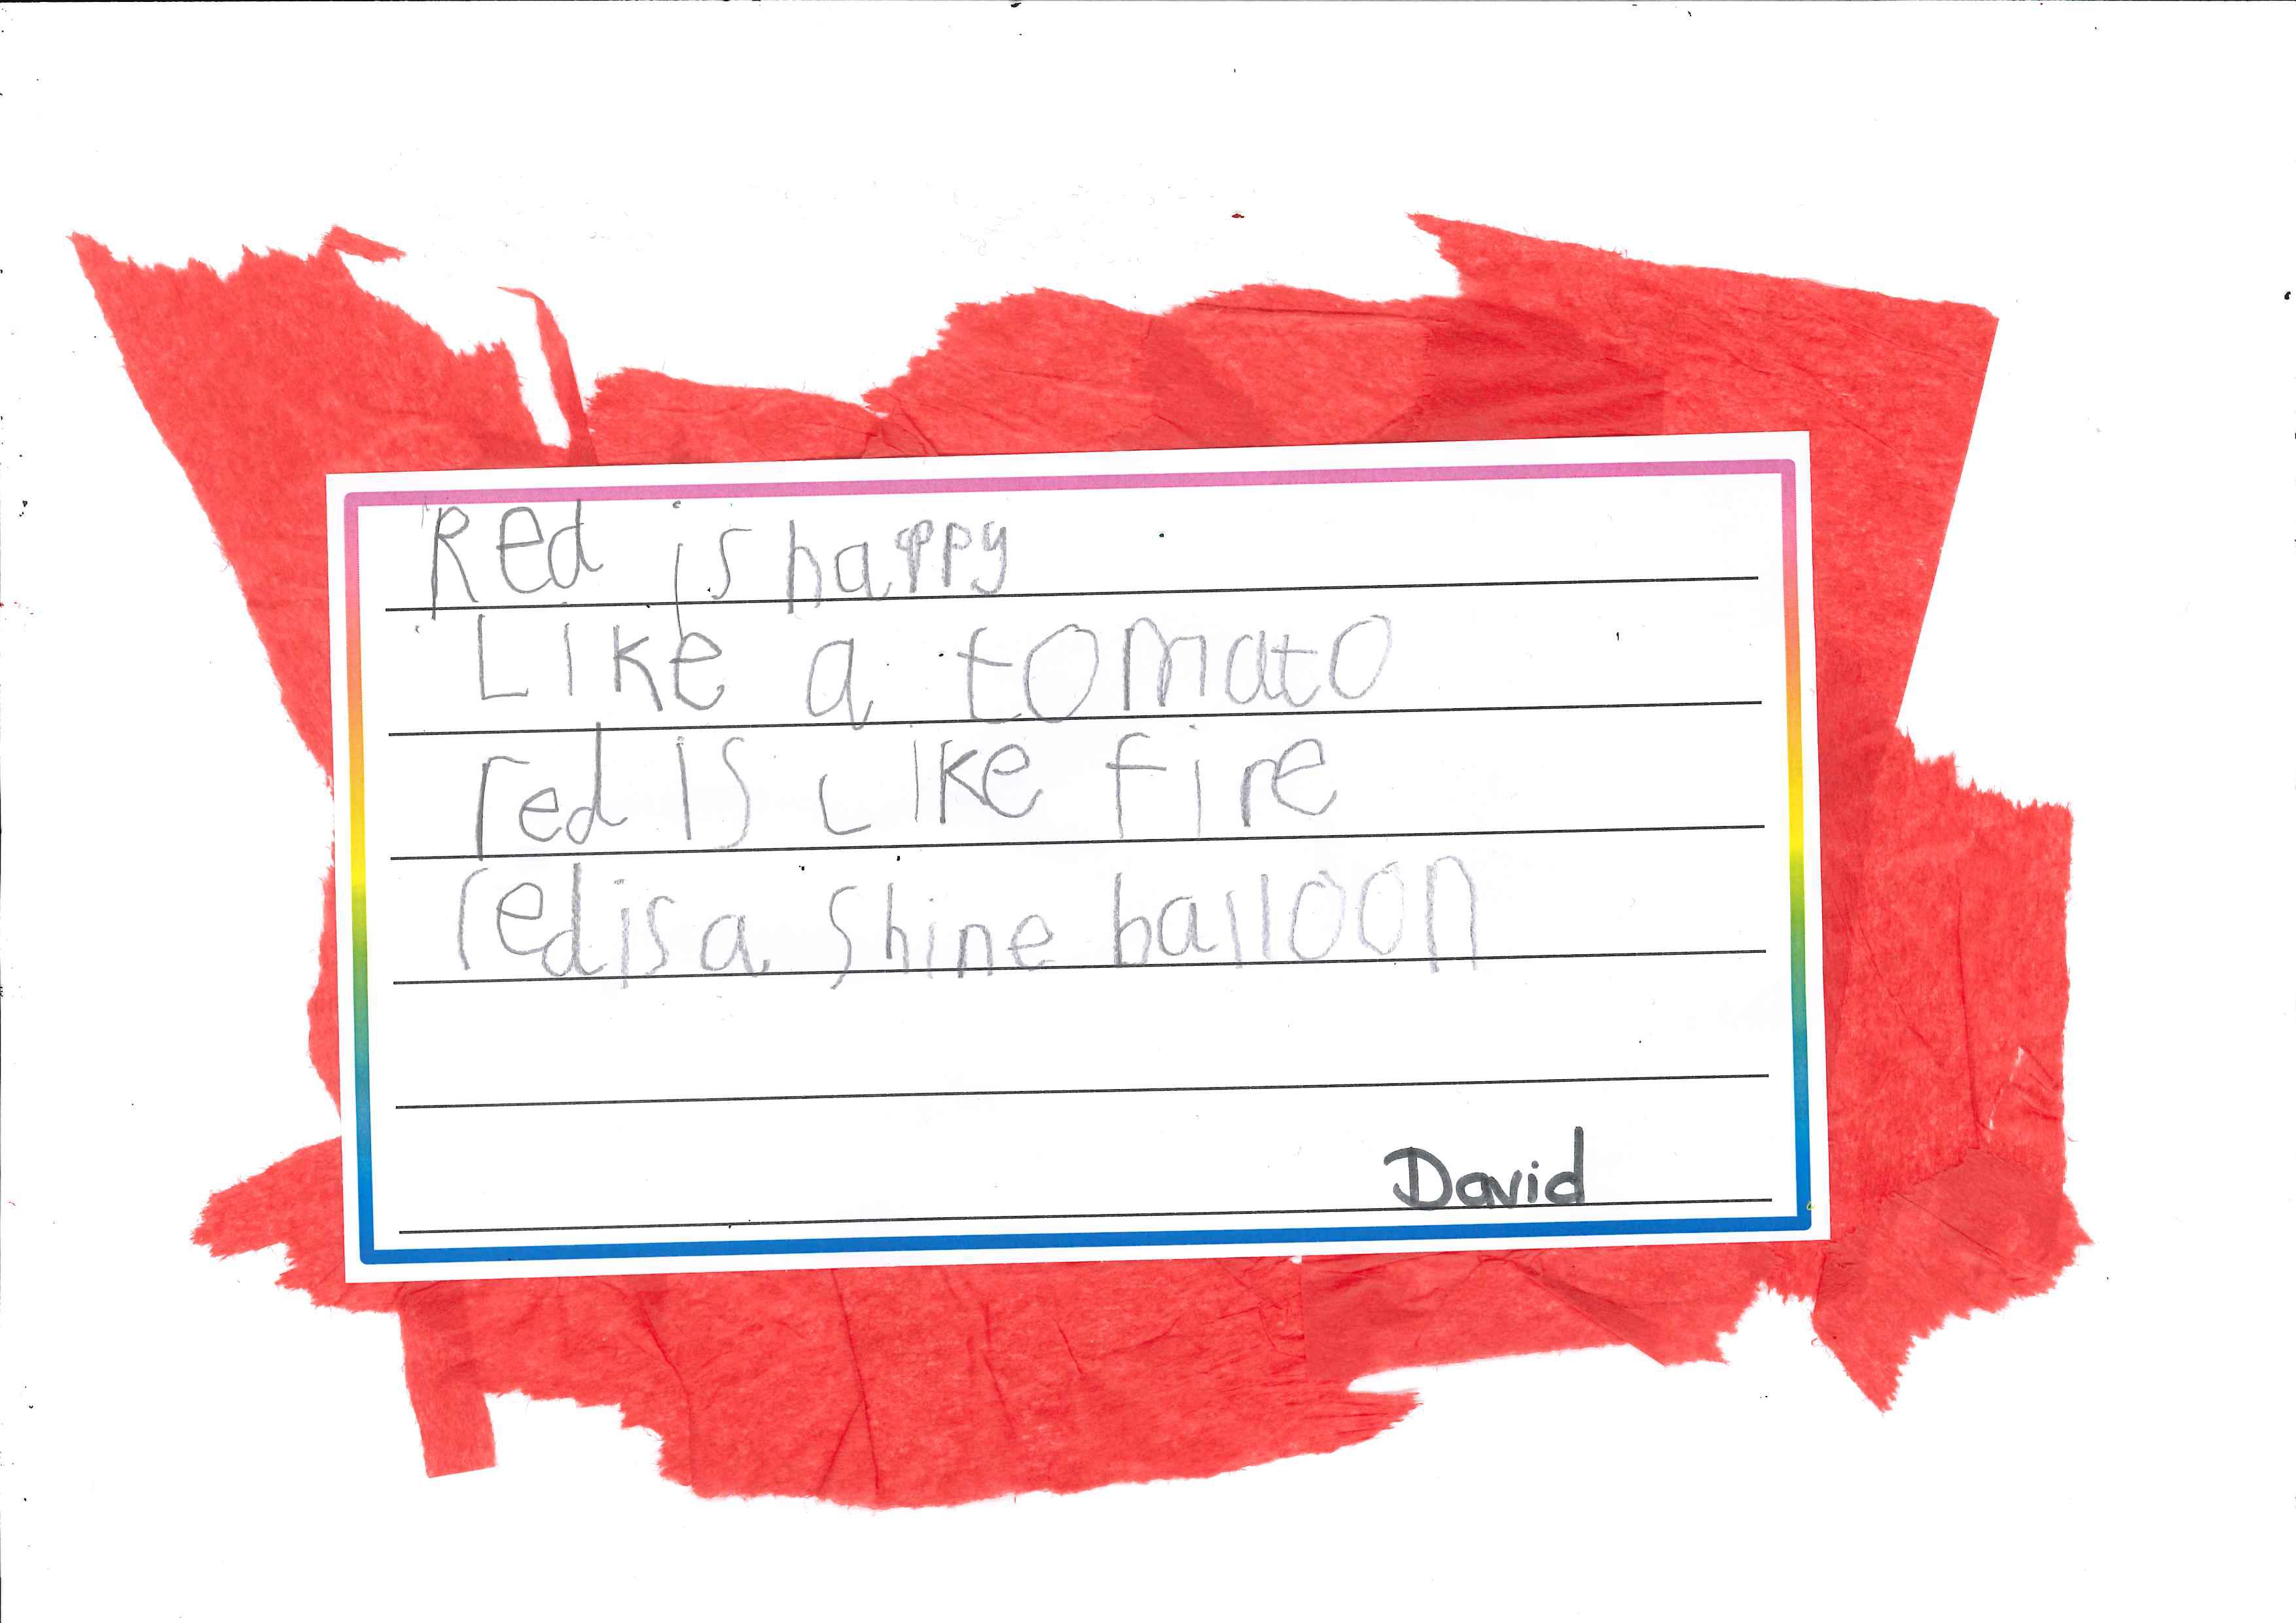 Red is happy
Like a tomato
red is Like fire
red is a shine balloon
David